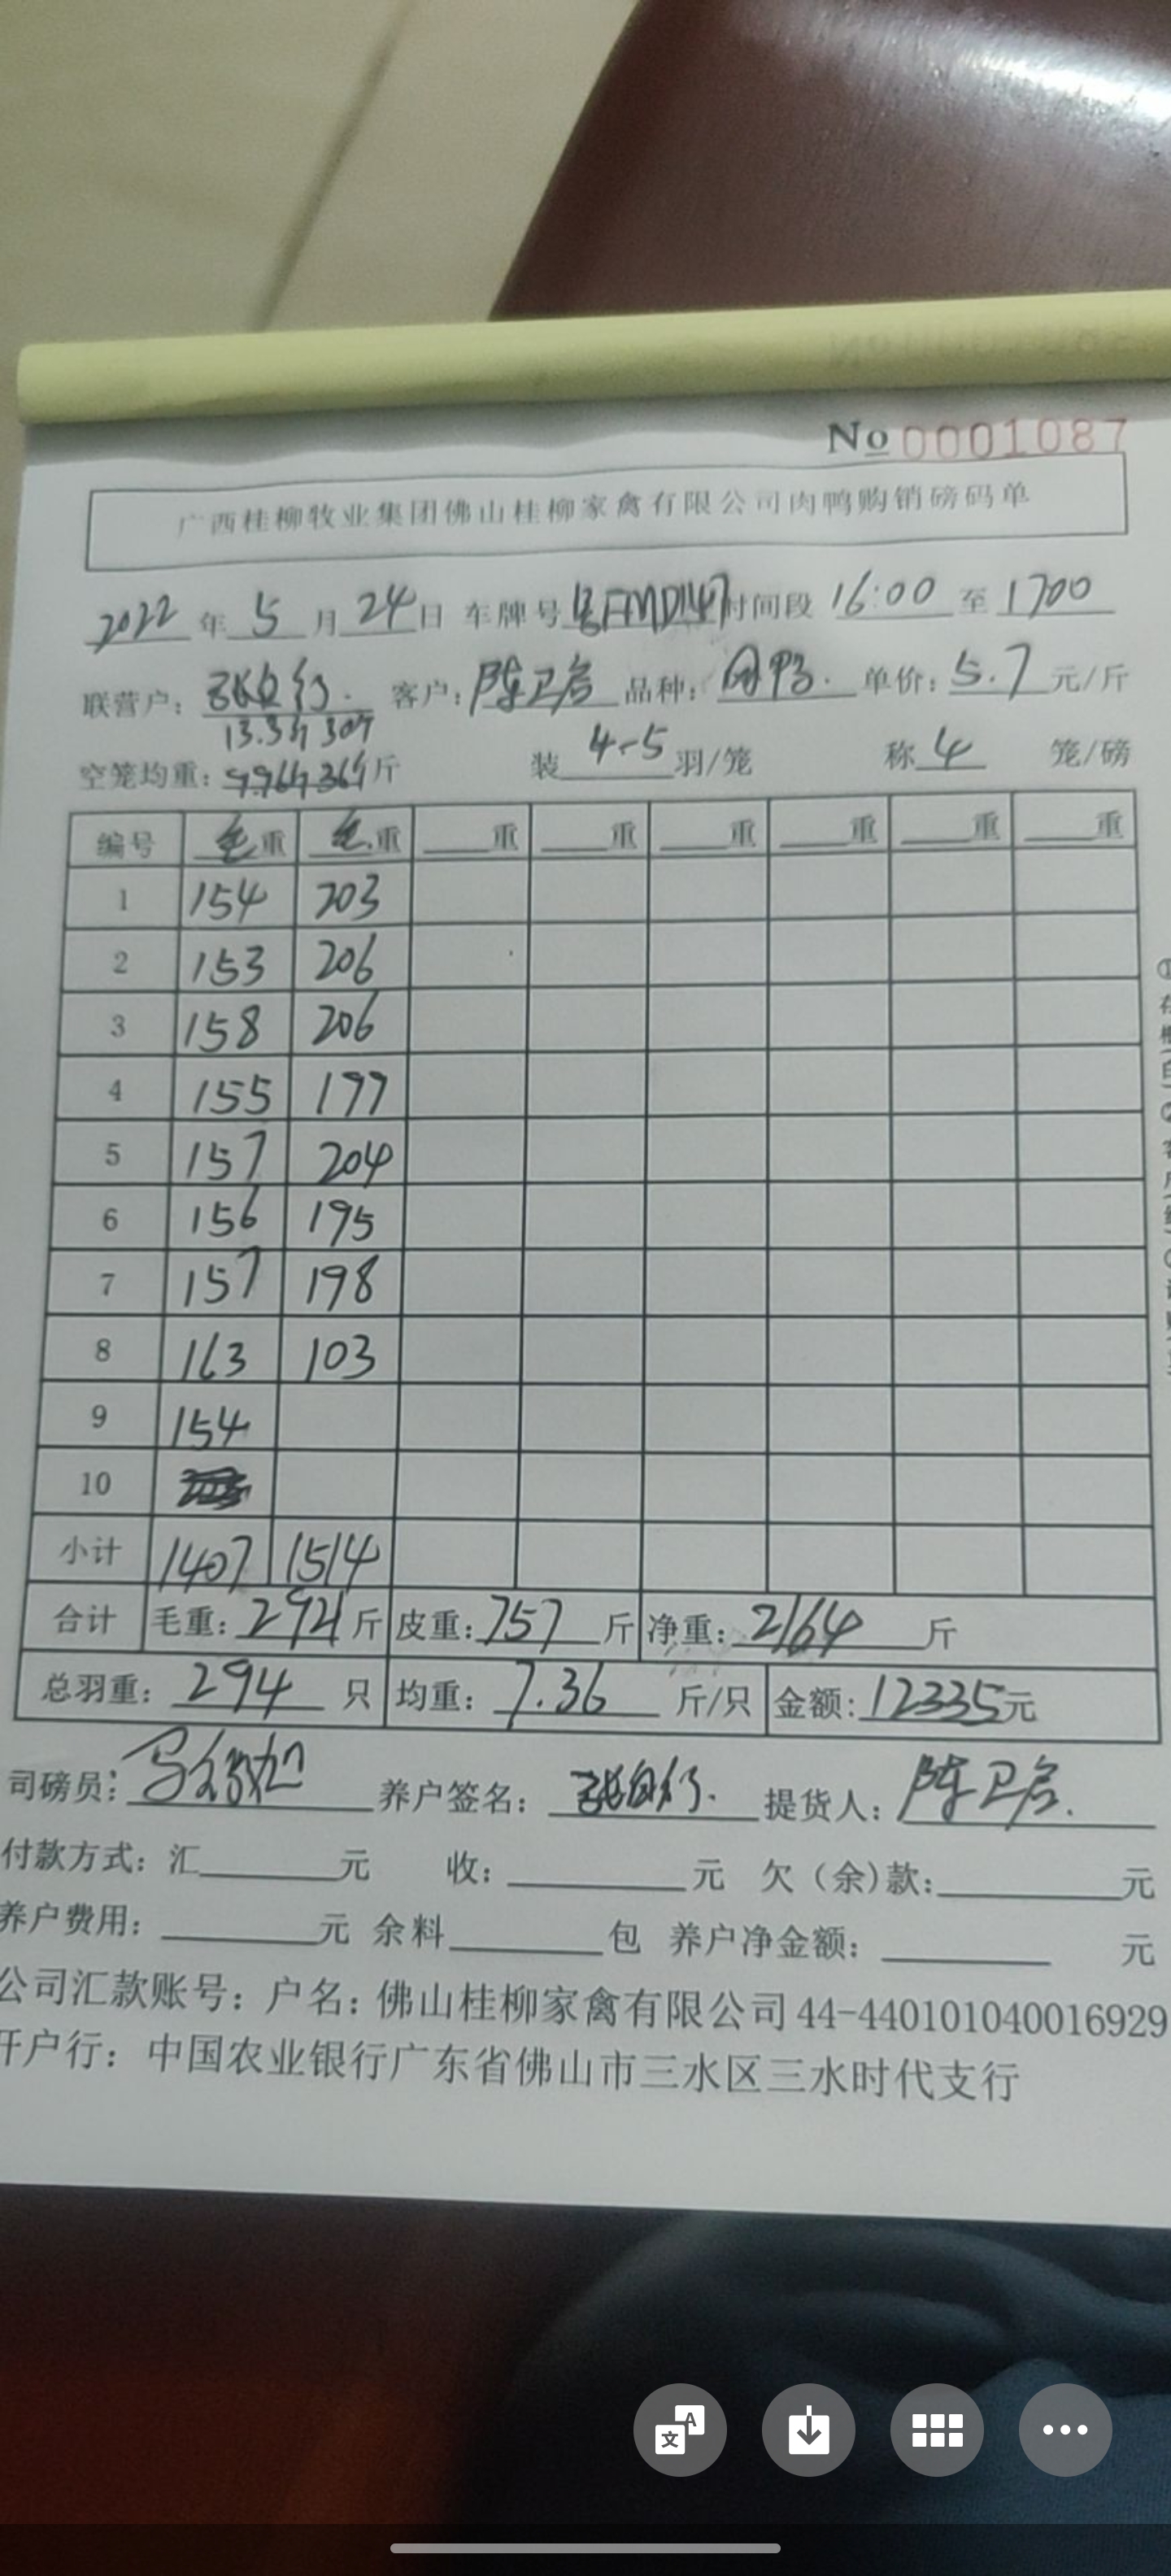 No 0001087
广西桂柳牧业集团佛山桂柳家禽有限公司肉鸭购销磅码单
2022年5月24日 车牌号 时间段 16:00 至 1700
联营户: 客户:陈卫 品种: 单价:5.7元/斤
13.3 30个
空笼均重: 斤 装 4-5 羽/笼 称 4 笼/磅
编号 毛重 毛重 重 重 重 重 重 重
1 154 203
2 153 206
3 158 206
4 155 199
5 157 204
6 156 195
7 157 198
8 163 103
9 154
10
小计 1407 1514
合计 毛重:2921斤 皮重:757斤 净重:2164斤
总羽重:294只 均重:7.36斤/只 金额:12335元
司磅员: 养户签名: 提货人:陈卫
付款方式:汇 元 收: 元 欠(余)款: 元
养户费用: 元 余料 包 养户净金额: 元
公司汇款账号:户名:佛山桂柳家禽有限公司44-440101040016929
开户行:中国农业银行广东省佛山市三水区三水时代支行